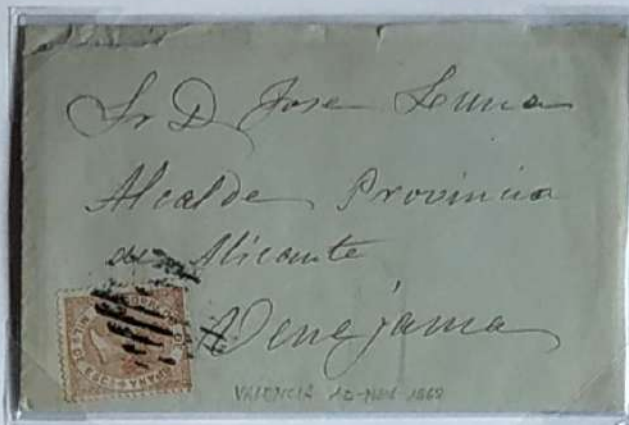 Sr D Jose Lerma
Alcalde Provincia
de Alicante
Venejama
VALENCIA 10-NOV-1868